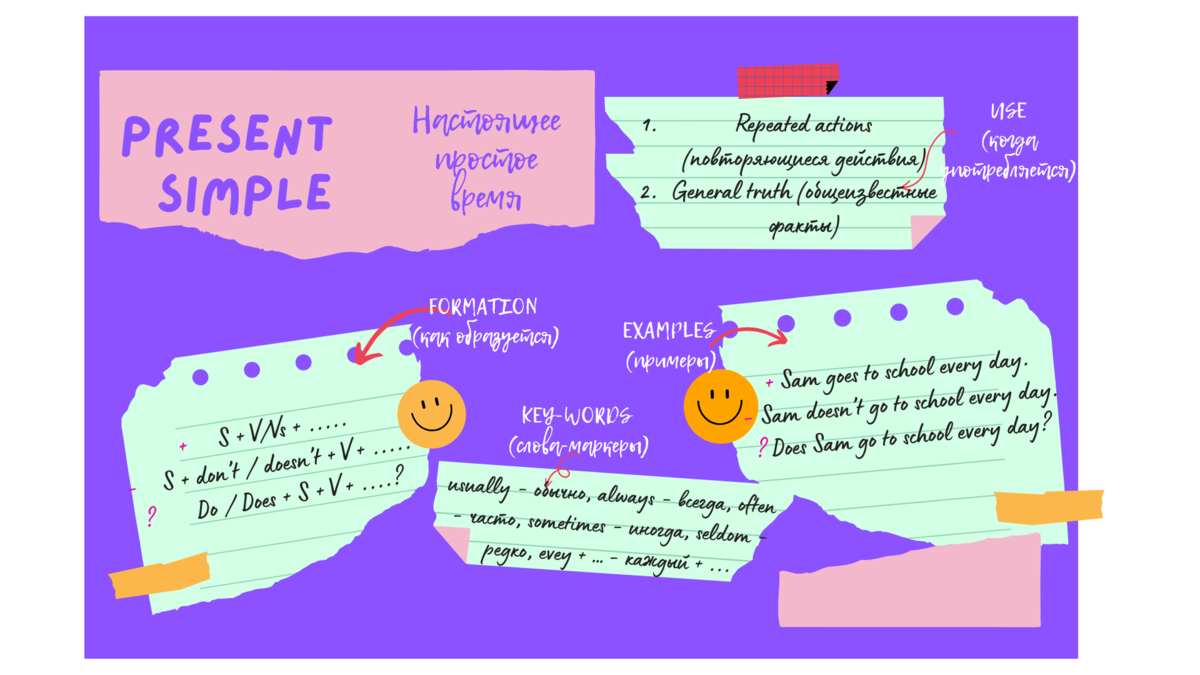 PRESENT
SIMPLE
Настоящее
простое
время
1. Repeated actions
(повторяющиеся действия)
2. General truth (общеизвестные
факты)
USE
(когда
употребляется)
FORMATION
(как образуется)
+ S + V/Vs + .....
- S + don't / doesn't + V + .....
? Do / Does + S + V + ....?
EXAMPLES
(примеры)
+ Sam goes to school every day.
- Sam doesn't go to school every day.
? Does Sam go to school every day?
KEY-WORDS
(слова-маркеры)
usually - обычно, always - всегда, often
- часто, sometimes - иногда, seldom -
редко, evey + ... - каждый + ...